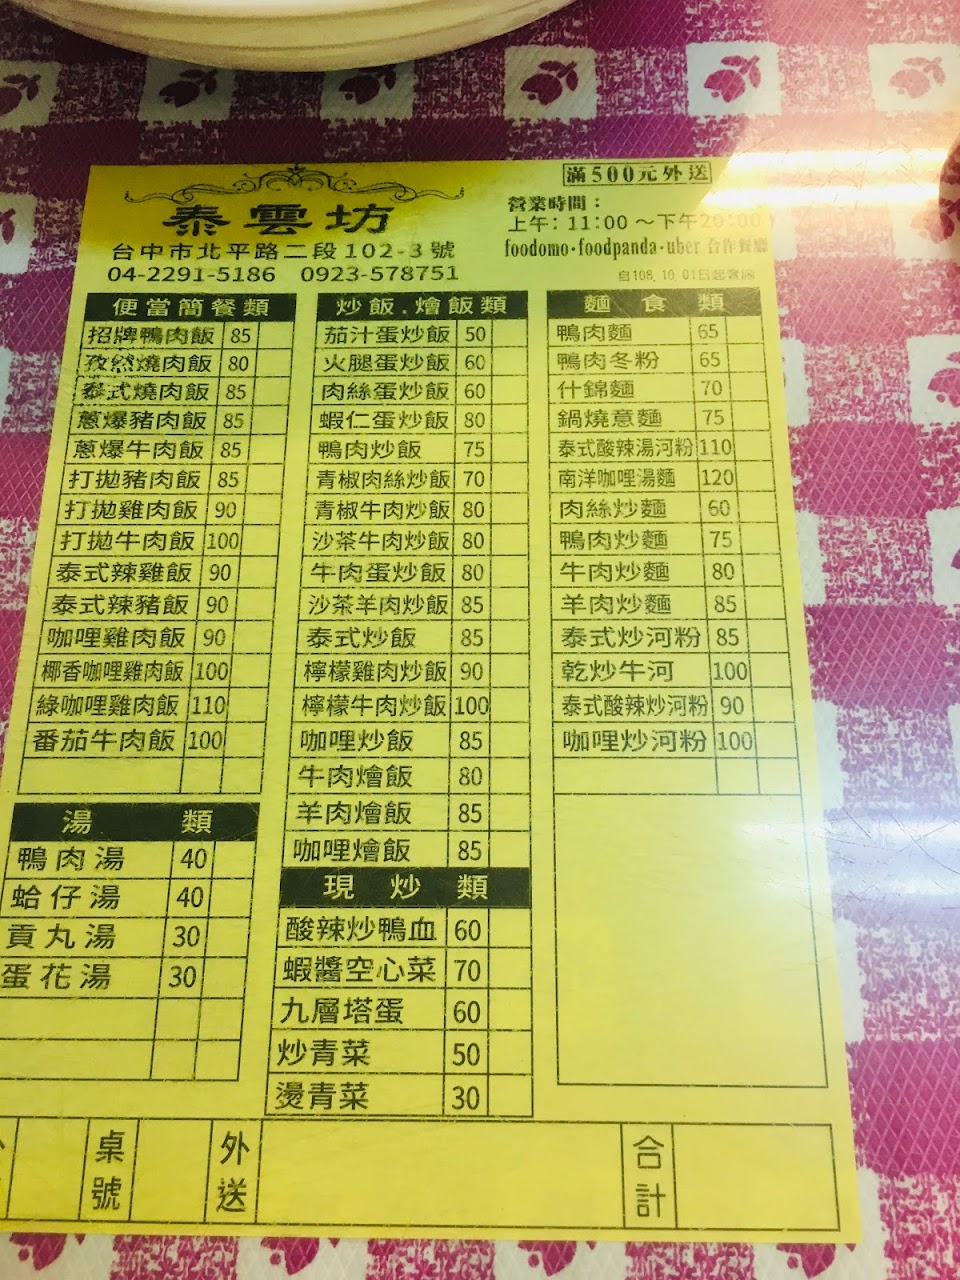 滿500元外送
泰雲坊
台中市北平路二段102-3號
04-2291-5186 0923-578751
營業時間：
上午：11:00～下午20:00
foodomo·foodpanda·uber 合作餐廳
自108.10.01日起實施
便當簡餐類
招牌鴨肉飯 85
孜然燒肉飯 80
泰式燒肉飯 85
蔥爆豬肉飯 85
蔥爆牛肉飯 85
打拋豬肉飯 85
打拋雞肉飯 90
打拋牛肉飯 100
泰式辣雞飯 90
泰式辣豬飯 90
咖哩雞肉飯 90
椰香咖哩雞肉飯 100
綠咖哩雞肉飯 110
番茄牛肉飯 100
湯類
鴨肉湯 40
蛤仔湯 40
貢丸湯 30
蛋花湯 30
炒飯.燴飯類
茄汁蛋炒飯 50
火腿蛋炒飯 60
肉絲蛋炒飯 60
蝦仁蛋炒飯 80
鴨肉炒飯 75
青椒肉絲炒飯 70
青椒牛肉炒飯 80
沙茶牛肉炒飯 80
牛肉蛋炒飯 80
沙茶羊肉炒飯 85
泰式炒飯 85
檸檬雞肉炒飯 90
檸檬牛肉炒飯 100
咖哩炒飯 85
牛肉燴飯 80
羊肉燴飯 85
咖哩燴飯 85
現炒類
酸辣炒鴨血 60
蝦醬空心菜 70
九層塔蛋 60
炒青菜 50
燙青菜 30
麵食類
鴨肉麵 65
鴨肉冬粉 65
什錦麵 70
鍋燒意麵 75
泰式酸辣湯河粉 110
南洋咖哩湯麵 120
肉絲炒麵 60
鴨肉炒麵 75
牛肉炒麵 80
羊肉炒麵 85
泰式炒河粉 85
乾炒牛河 100
泰式酸辣炒河粉 90
咖哩炒河粉 100
桌號
外送
合計